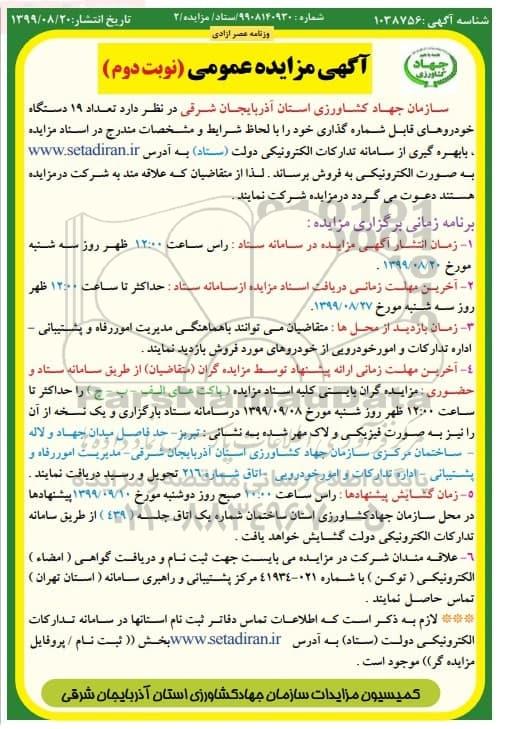 شناسه آگهی :۱۰۳۸۷۵۶
شماره : ۹۹۰۸۱۴۰۹۳۰/ستاد/ مزایده/۲
تاریخ انتشار:۱۳۹۹/۰۸/۲۰
وزنامه عصر ازادی
آگهی مزایده عمومی (نوبت دوم )
جهاد
کشاورزی
سازمان جهاد کشاورزی استان آذربایجان شرقی در نظر دارد تعداد ۱۹ دستگاه
خودروهای قابل شماره گذاری خود را با لحاظ شرایط و مشخصات مندرج در اسناد مزایده
، بابهره گیری از سامانه تدارکات الکترونیکی دولت (ستاد) به آدرس www.setadiran.ir
به صورت الکترونیکی به فروش برساند . لذا از متقاضیان که علاقه مند به شرکت درمزایده
هستند دعوت می گردد درمزایده شرکت نمایند .
برنامه زمانی برگزاری مزایده :
۱- زمان انتشار آگهی مزایده در سامانه ستاد : راس ساعت ۱۲:۰۰ ظهر روز سه شنبه
مورخ ۱۳۹۹/۰۸/۲۰ .
۲- آخرین مهلت زمانی دریافت اسناد مزایده ازسامانه ستاد : حداکثر تا ساعت ۱۲:۰۰ ظهر
روز سه شنبه مورخ ۱۳۹۹/۰۸/۲۷.
۳- زمان بازدید از محل ها : متقاضیان می توانند باهماهنگی مدیریت اموررفاه و پشتیبانی -
اداره تدارکات و امورخودرویی از خودروهای مورد فروش بازدید نمایند .
۴- آخرین مهلت زمانی ارائه پیشنهاد توسط مزایده گران (متقاضیان) از طریق سامانه ستاد و
حضوری : مزایده گران بایستی کلیه اسناد مزایده ( پاکت های الف - ب - ج ) را حداکثر تا
ساعت ۱۲:۰۰ ظهر روز شنبه مورخ ۱۳۹۹/۰۹/۰۸ درسامانه ستاد بارگزاری و یک نسخه از آن
را نیز به صورت فیزیکی و لاک مهر شده به نشانی : تبریز- حد فاصل میدان جهاد و لاله
- ساختمان مرکزی سازمان جهاد کشاورزی استان آذربایجان شرقی- مدیریت اموررفاه و
پشتیبانی - اداره تدارکات و امورخودرویی -اتاق شماره ۲۱۶ تحویل و رسید دریافت نمایند .
۵- زمان گشایش پیشنهادها : راس ساعت ۱۰:۰۰ صبح روز دوشنبه مورخ ۱۳۹۹/۰۹/۱۰پیشنهادها
در محل سازمان جهادکشاورزی استان ساختمان شماره یک اتاق جلسه ( ۴۳۹ ) از طریق سامانه
تدارکات الکترونیکی دولت گشایش خواهد یافت .
۶- علاقه مندان شرکت در مزایده می بایست جهت ثبت نام و دریافت گواهی ( امضاء )
الکترونیکی ( توکن ) با شماره ۰۲۱-۴۱۹۳۴ مرکز پشتیبانی و راهبری سامانه ( استان تهران )
تماس حاصل نمایند .
*** لازم به ذکر است که اطلاعات تماس دفاتر ثبت نام استانها در سامانه تدارکات
الکترونیکی دولت (ستاد) به آدرس www.setadiran.irبخش (( ثبت نام / پروفایل
مزایده گر)) موجود است .
کمیسیون مزایدات سازمان جهادکشاورزی استان آذربایجان شرقی